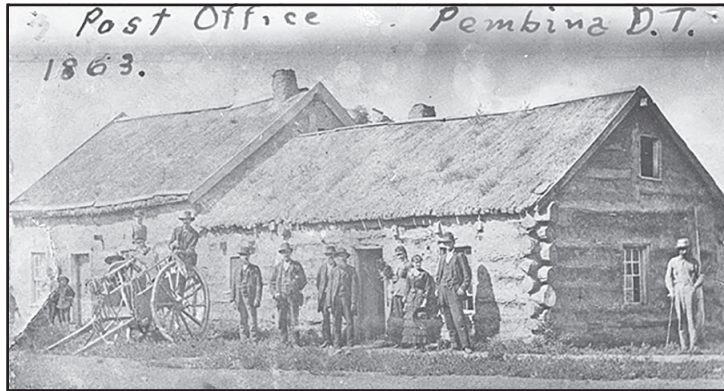 Post Office Pembina D.T.
1863.